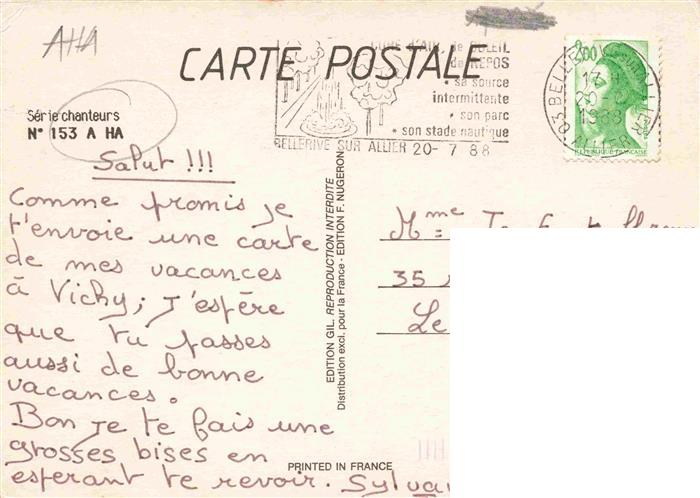 AHA
CURE d'AIR, de SOLEIL
de REPOS
• sa source
intermittente
• son parc
• son stade nautique
BELLERIVE SUR ALLIER 20-7 88
CARTE POSTALE
2,00
17 H
20-7
1988
RÉPUBLIQUE FRANÇAISE
Série chanteurs
N° 153 A HA
Salut !!!
Comme promis je
t'envoie une carte
de mes vacances
à Vichy; j'espère
que tu passes
aussi de bonne
vacances.
Bon je te fais une
grosses bises en
esperant te revoir. Sylva
EDITION GIL. REPRODUCTION INTERDITE
Distribution excl. pour la France - EDITION F. NUGERON
PRINTED IN FRANCE
Mme
35
Le